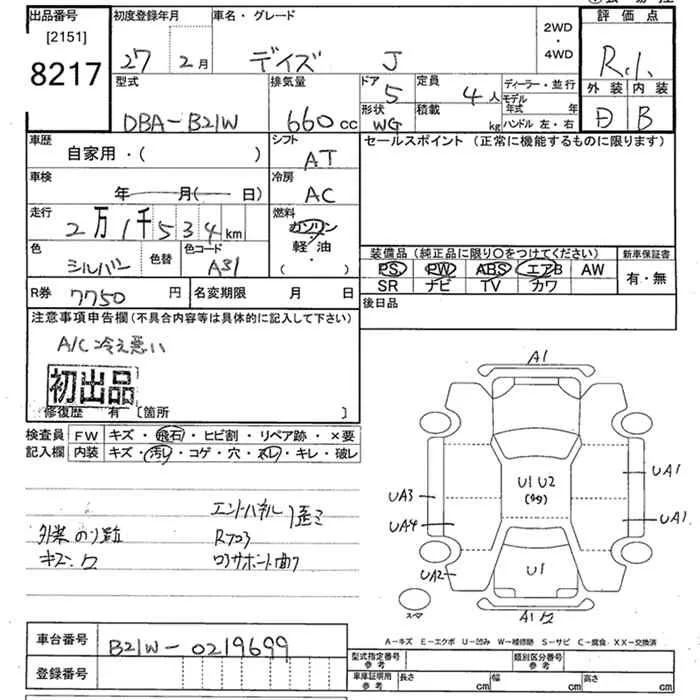 出品番号 初度登録年月 車名・グレード 評価点
[2151] 2WD
8217 27 2月 デイズ J ・
4WD R.1.
型式 排気量 ドア 定員 ディーラー・並行 外装 内装
DBA-B21W 660cc 5 4人 モデル年式 年 D B
形状 積載
WG kg ハンドル 左・右
車歴 シフト セールスポイント (正常に機能するものに限ります)
自家用・( ) AT
車検 冷房
年 月( 日) AC
走行 燃料
2万1千534km ガソリン
軽油
( )
色 色替 色コード 装備品 (純正品に限り○をつけてください) 新車保証書
シルバー A31 PS PW ABS エアB AW 有・無
SR ナビ TV カワ
R券 7750円 名変期限 月 日 後日品
注意事項申告欄(不具合内容等は具体的に記入して下さい)
A/C 冷え悪い
初出品
修復歴 有 [箇所 ]
検査員 FW キズ・飛石・ヒビ割・リペア跡・×要
記入欄 内装 キズ・汚レ・コゲ・穴・スレ・キレ・破レ
A1
UA1
U1 U2
(多)
UA3 UA1
UA4
UA2 U1
スペア A1
エンドパネル
外装 のり跡 R フロア
キズ・凹 ロアサポート曲り
A-キズ E-エクボ U-凹み W-補修跡 S-サビ C-腐食・XX-交換済
車台番号 B21W-0219699
登録番号
型式指定番号 参考 類別区分番号 参考
車庫証明用 参考 長さ cm 幅 cm 高さ cm